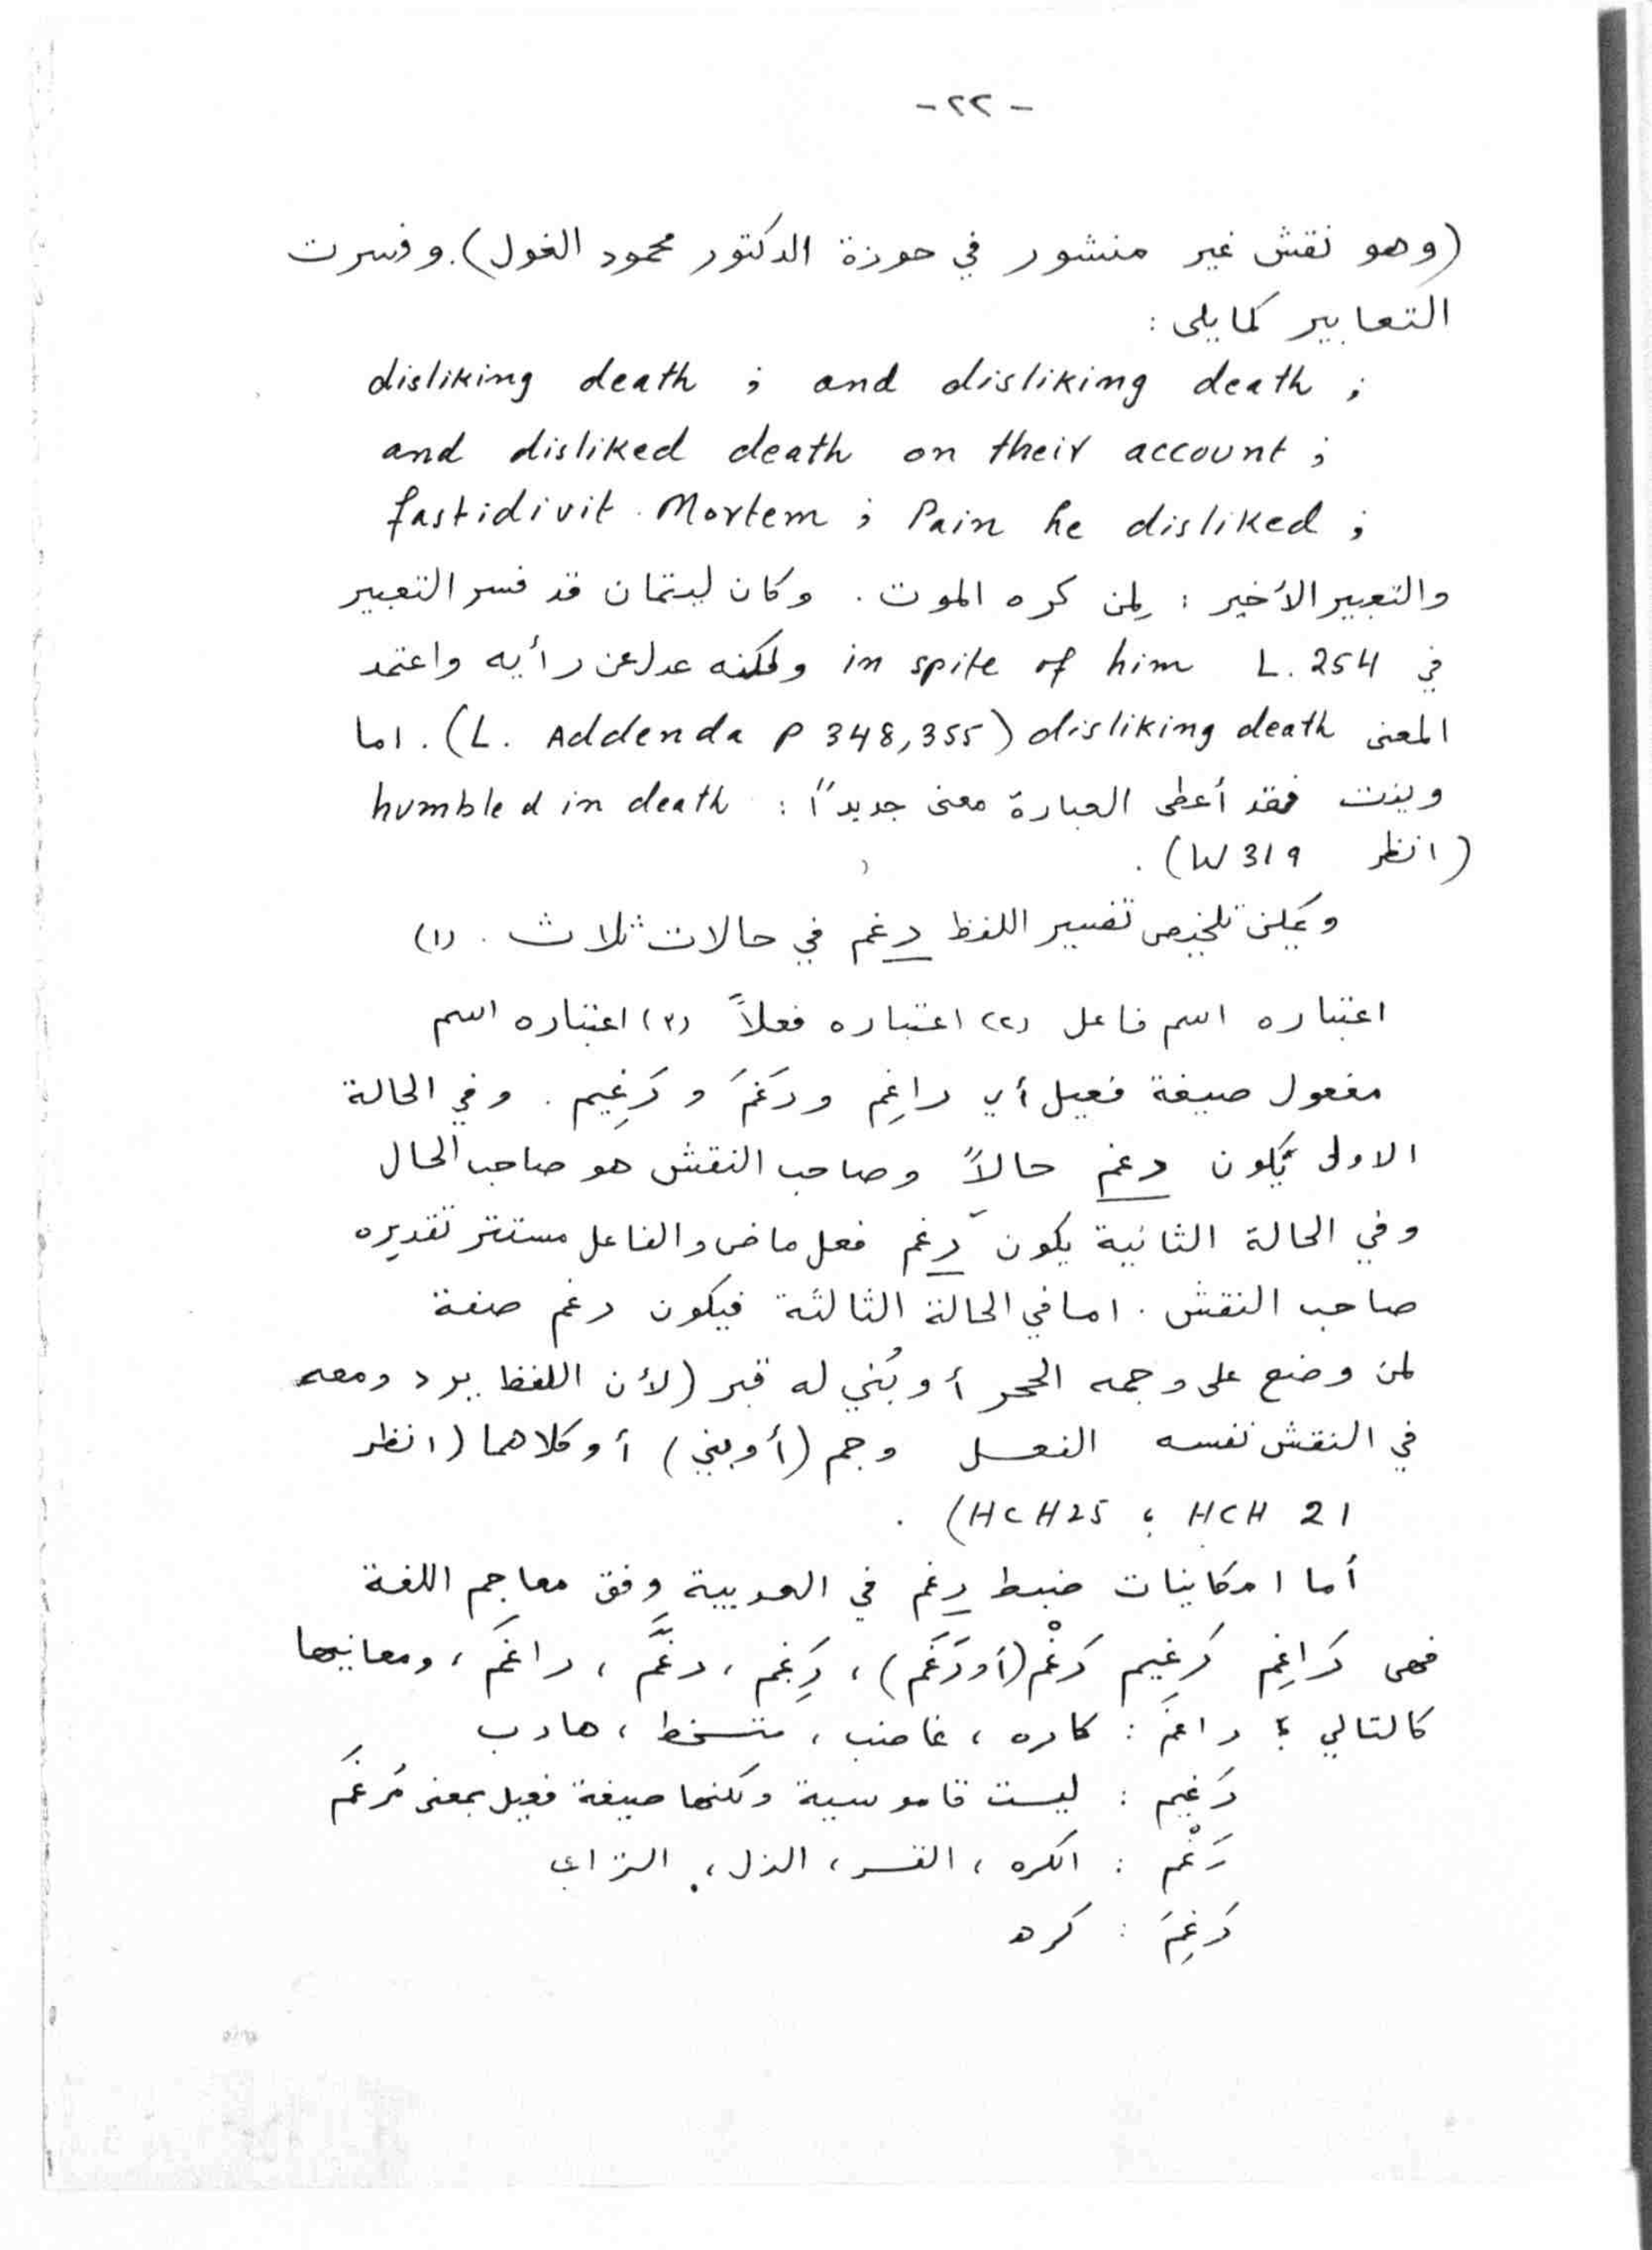 -٢٢-
(وهو نقش غير منشور في حوزة الدكتور محمود الغول). وفسرت
التعابير كما يلى :
disliking death ; and disliking death ;
and disliked death on their account ;
fastidivit Mortem ; Pain he disliked ;
والتعبير الأخير : لِمن كره الموت . وكان ليتمان قد فسر التعبير
في L. 254 in spite of him ولكنه عدل عن رأيه واعتمد
المعنى disliking death (L. Addenda P 348,355) . اما
وينت فقد أعطى العبارة معنى جديداً : humbled in death
(انظر W 319) .
ويمكن تلخيص تفسير اللفظ رغم في حالات ثلاث . (١)
اعتباره اسم فاعل (٢) اعتباره فعلاً (٣) اعتباره اسم
مفعول صيغة فعيل أي راغِم ورَغَمَ و رَغِيم . وفي الحالة
الاولى يكون رغم حالاً وصاحب النقش هو صاحب الحال
وفي الحالة الثانية يكون رغم فعل ماض والفاعل مستتر تقديره
صاحب النقش . اما في الحالة الثالثة فيكون رغم صفة
لمن وضع على وجمه الحجر أو بُني له قبر (لأن اللفظ يرد ومعه
في النقش نفسه الفعل وجم (أو بني) أو كلاهما (انظر
HCH 21 ؛ HCH25) .
أما امكانيات ضبط رغم في العربية وفق معاجم اللغة
فهى رَاغِم رَغِيم رَغْم (أو رَغَم) ، رَغِم ، رغَّم ، راغَم ، ومعانيها
كالتالي ؛ راغم : كاره ، غاضب ، متسخط ، هارب
رَغيم : ليست قاموسية ولكنها صيغة فعيل بمعنى مُرغَم
رَغْم : الكره ، القسر ، الذل ، التراب
رَغِمَ : كره